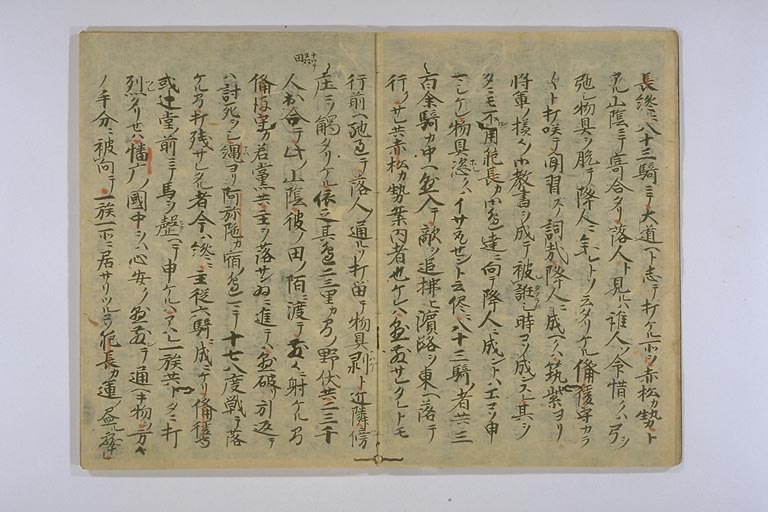 長終ニ八十三騎ニテ大道ヘト志テ打ケル所ヲ赤松カ勢ト
アル山陰ニテ寄合タリ落人ト見ルハ誰人ソ命惜クハ弓ヲ
弛シ物具ヲ脱テ降人ニ参レトソ云タリケル備後守カラ
〱ト打咲テ聞習ヌ詞哉降人ニ成ヘクハ筑紫ヨリ
将軍ノ様々ノ御教書ヲ成テ被誘シ時コソ成ンスレ其ヲ
タニモ不用範長カ御邊達ニ向テ降人ニ成コトハエコソ申
マシケレ物具恣クハイサ セント云侭ニ八十三騎者共三
百余騎カ中ヘ懸入テ敵ヲ追拂ヒ濱路ヲ東ヘ落テ
行クサレ共赤松カ勢案内者也ケレハ懸散サレタレトモ
行前ヘ馳過テ落人ノ通ルソ打留テ物具剥ト近隣傍
庄ニソ觸タリケル依之其邊二三里カ間ノ野伏共二三千
人出合テ此山陰彼ノ田ノ陌ニ渡テ散々ニ射ケル間
備後守カ若黨共主ヲ落サン為ニ進テハ懸破リ引返テ
ハ討死シ縄ヨリ阿弥陀カ宿ノ邊ニテ十七八度戦テ落
ケル間打残サレタル者今ハ終ニ主従六騎ニ成ニケリ備後守
或辻堂ノ前ニテ馬ヲ整ヘテ申ケルハアハレ一族共トタニ打
烈タリセハ播广ノ國中ヲハ心安ク懸散テ通ヘキ物ヲ方々
ノ手分ニ被向テ一族一所ニ居サリツルコソ範長カ運ノ盡ル